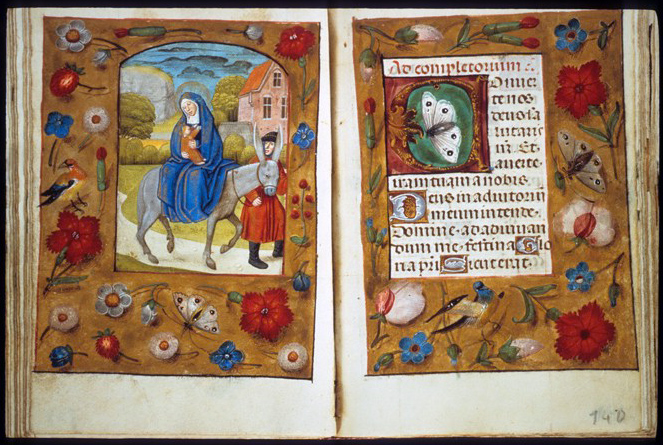 Ad completorium :.
COnuer
te nos
deus sa
lutaris
nr̄. Et
auerte
iram tuam a nobis.
Deus in adiutoriū
meum intende.
Domine ad adiuuan
dum me festina Glo
ria pr̄i Sicut erat.
140